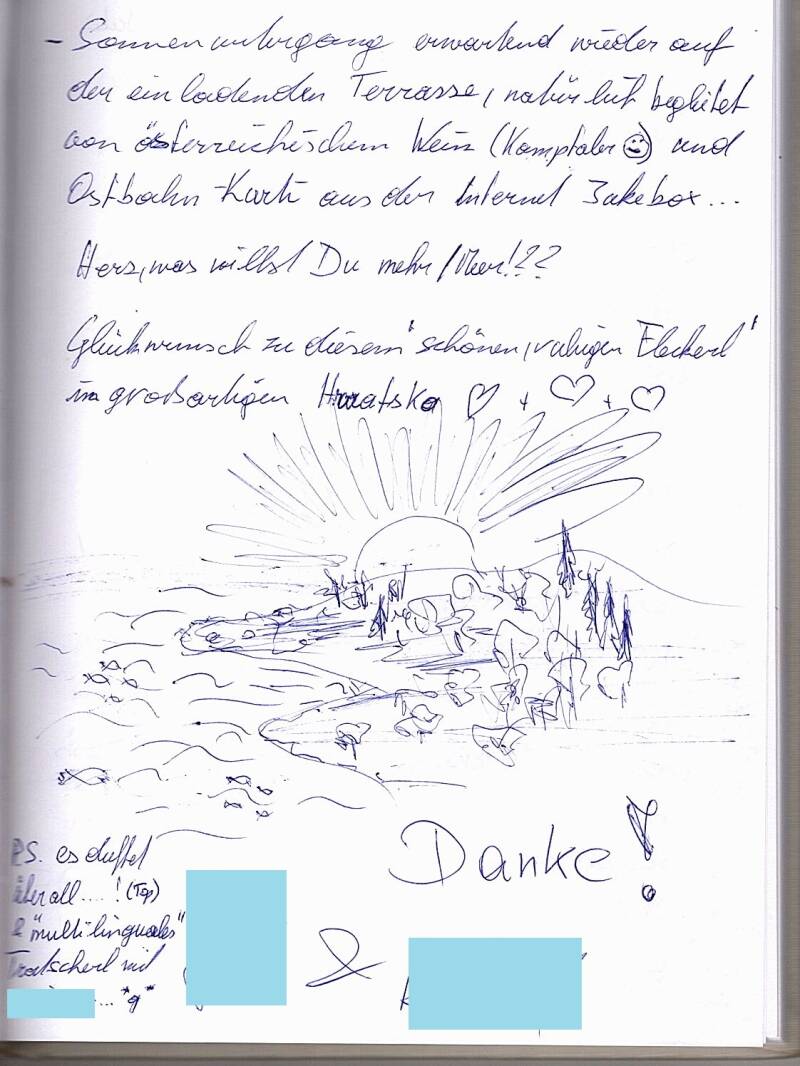 – Sonnenuntergang erwartend wieder auf
der einladenden Terrasse, natürlich begleitet
von österreichischem Wein (Kamptaler ☺) und
Ostbahn-Kurti aus der Internet Jukebox...
Herz, was willst Du mehr/Meer!??
Glückwunsch zu diesem "schönen, ruhigen Fleckerl"
im großartigen Hrvatska ♡ + ♡ + ♡
Danke!
P.S. es duftet
überall....! (Top)
& "multilinguales"
Tratscherl mit
... *g*
&